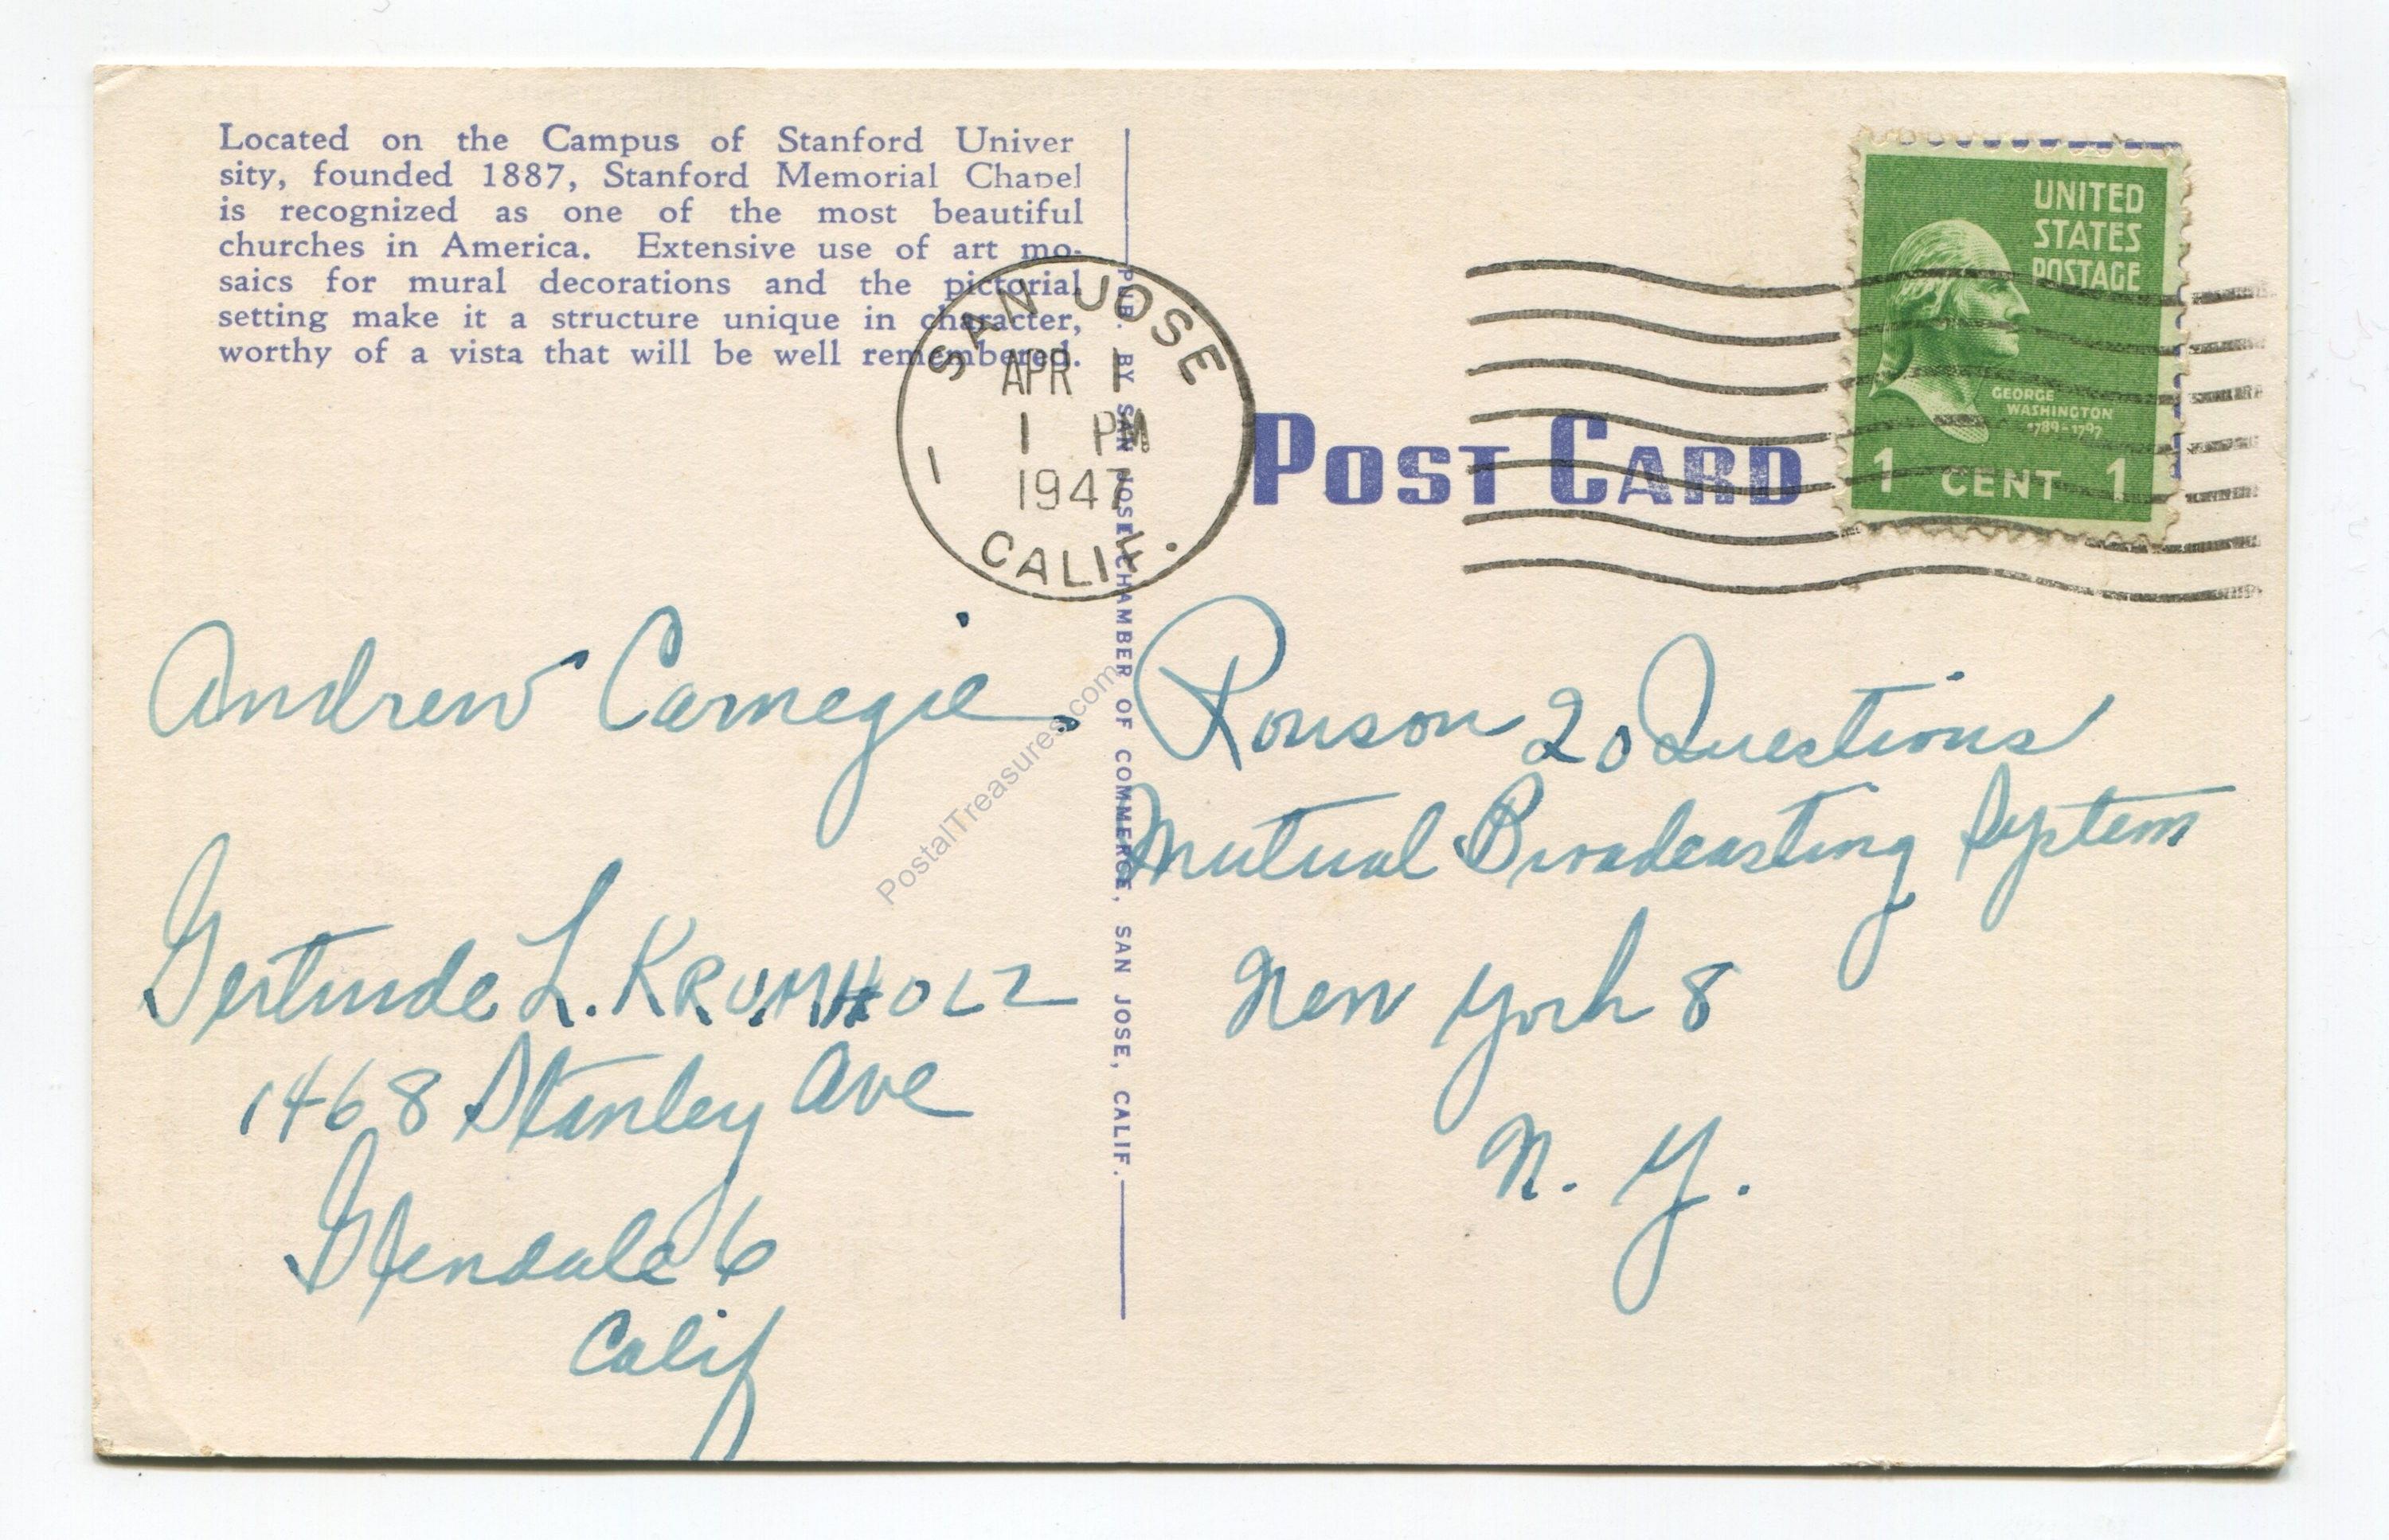 Located on the Campus of Stanford Univer
sity, founded 1887, Stanford Memorial Chapel
is recognized as one of the most beautiful
churches in America. Extensive use of art mo-
saics for mural decorations and the pictorial
setting make it a structure unique in character,
worthy of a vista that will be well remembered.
SAN JOSE
APR 1
1 PM
1947
1
CALIF.
POST CARD
UNITED
STATES
POSTAGE
GEORGE
WASHINGTON
1789-1797
1 CENT 1
PUB. BY SAN JOSE CHAMBER OF COMMERCE, SAN JOSE, CALIF.
Andrew Carnegie.
Gertrude L. KRUMHOLZ
1468 Stanley Ave
Glendale 6
Calif
Ronson 20 Questions
Mutual Broadcasting System
New York 8
N. Y.
PostalTreasures.com